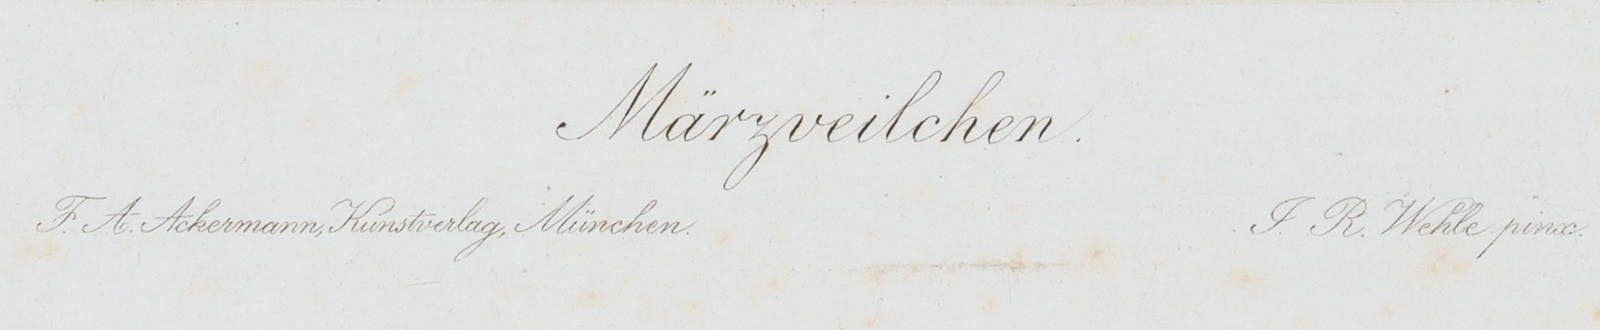 Märzveilchen.
F. A. Ackermann, Kunstverlag, München.
J. R. Wehle pinx.